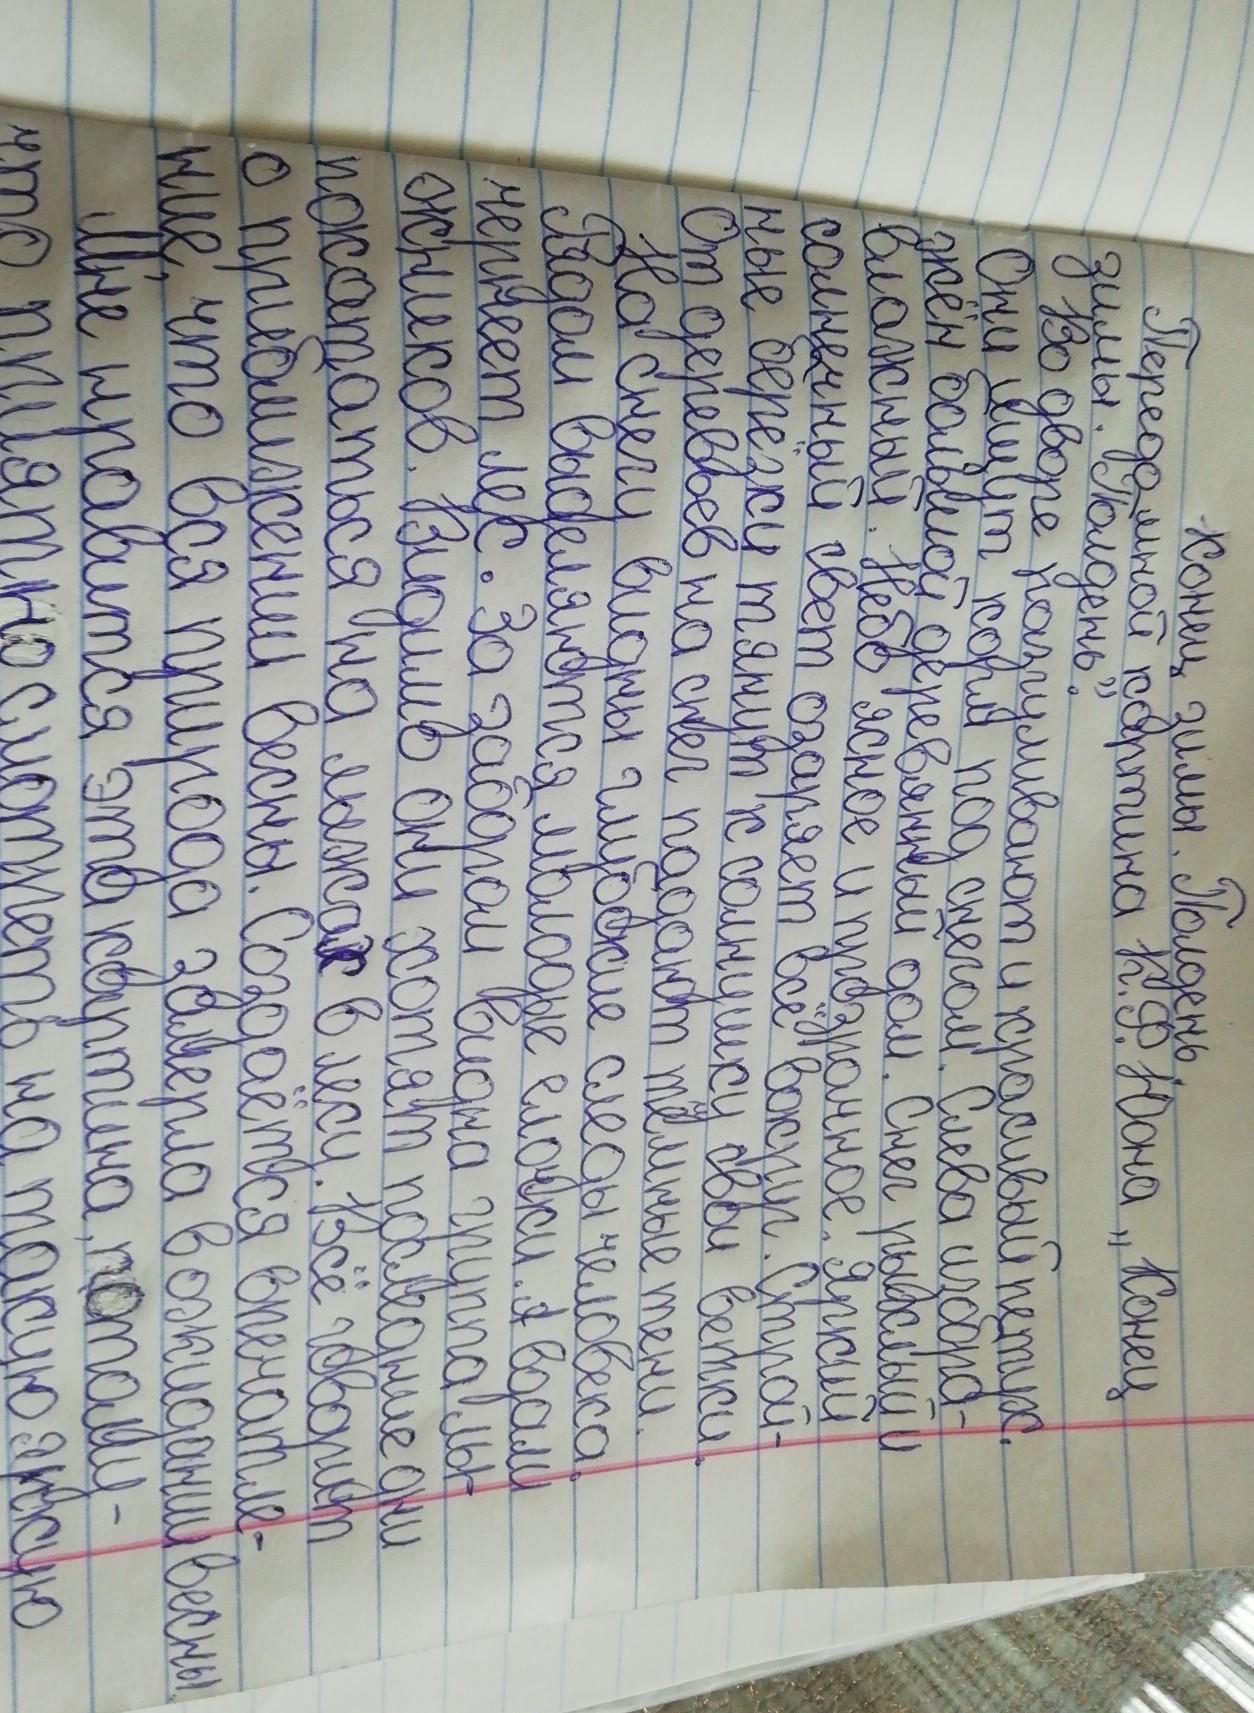 Конец зимы. Полдень.
Передо мной картина К.Ф. Юона „Конец
зимы. Полдень".
Во дворе разгуливают и красивый петух.
Они ищут корм под снегом. Слева изобра-
жён большой деревянный дом. Снег рыхлый и
влажный. Небо ясное и прозрачное. Яркий
солнечный свет озаряет всё вокруг. Строй-
ные берёзки тянут к солнушку свои ветки.
От деревьев на снег падают тёмные тени.
На снегу видны глубокие следы человека.
Рядом выделяются молодые елочки. А вдали
чернеет лес. За забором видна группа лы-
жников. Видимо они хотят последние дни
покататься на лыжах в лесу. Всё говорит
о приближении весны. Создаётся впечатле-
ние, что вся природа замерла в ожидании весны.
Мне нравится эта картина, потому-
что приятно смотреть на такую яркую